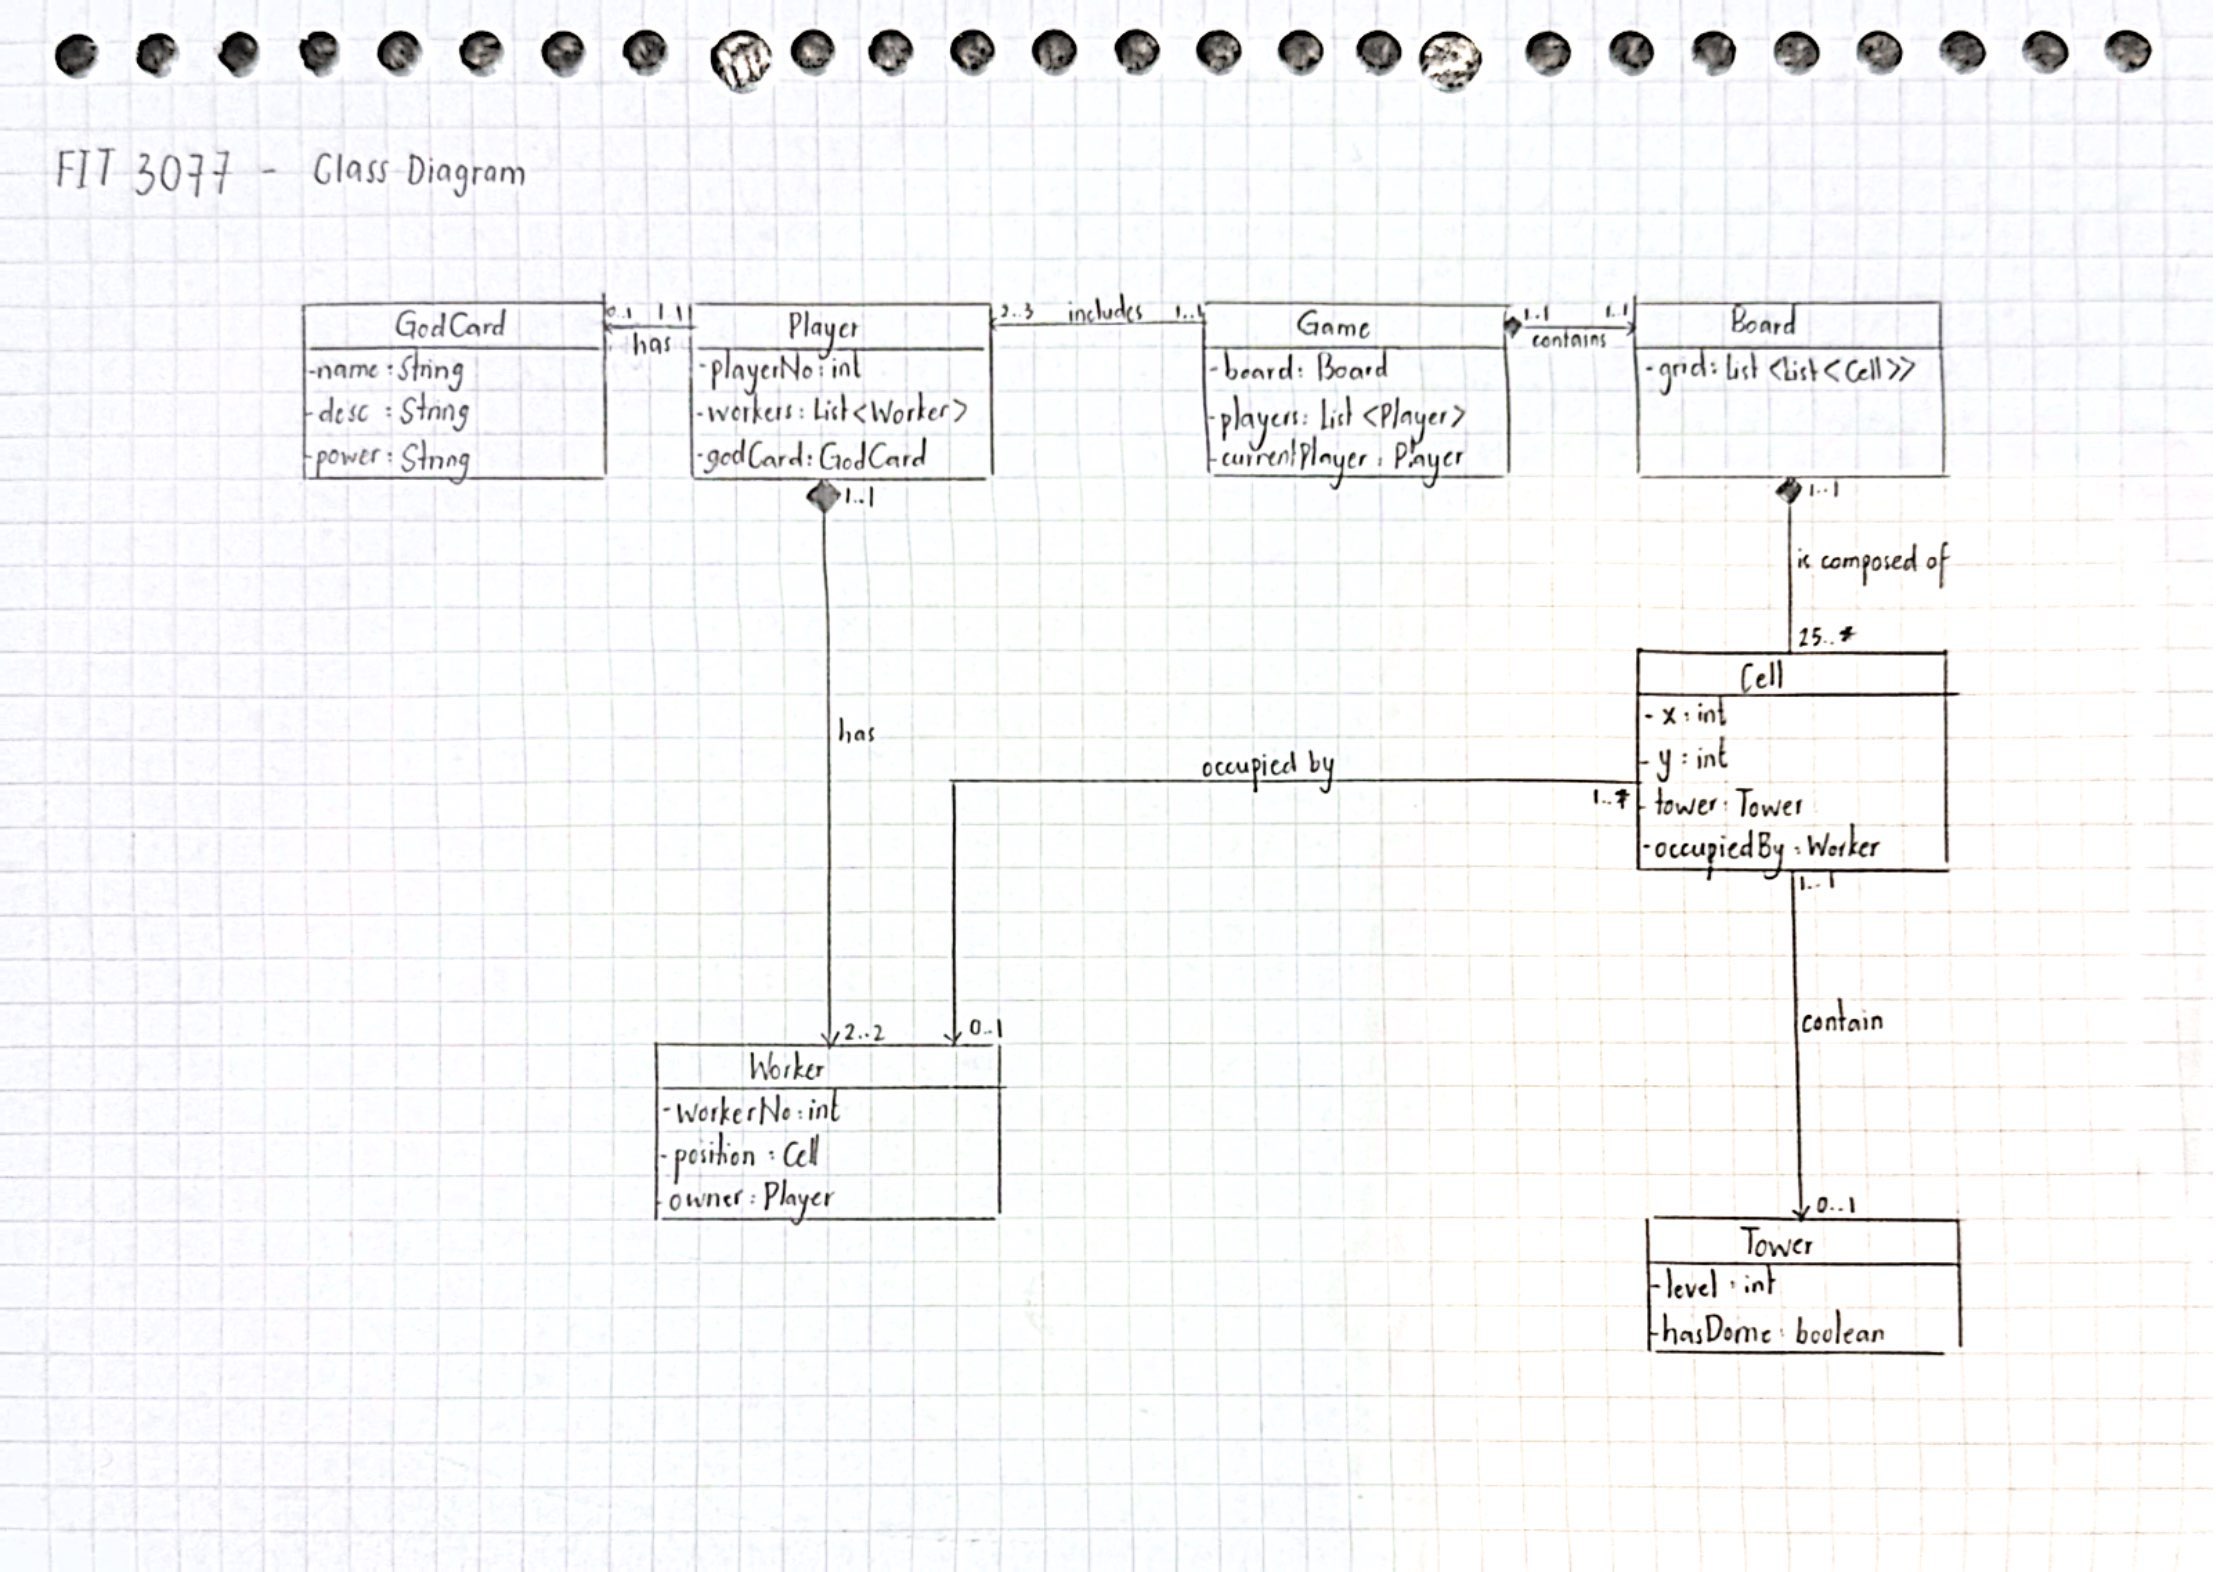 FIT 3077 - Class Diagram
GodCard
-name : String
-desc : String
-power : String
0..1 1..1
has
Player
-playerNo : int
-workers : List<Worker>
-godCard : GodCard
2..3 includes 1..1
Game
-board : Board
-players : List <Player>
-currentPlayer : Player
1..1 1..1
contains
Board
-grid : List <List<Cell>>
1..1
1..1
is composed of
25..*
Cell
- x : int
- y : int
- tower : Tower
-occupiedBy : Worker
has
occupied by
1..*
1..1
contain
2..2
0..1
Worker
-workerNo : int
-position : Cell
-owner : Player
0..1
Tower
-level : int
-hasDome : boolean